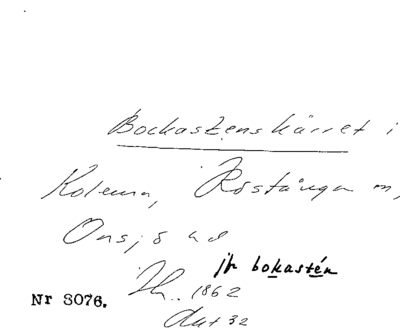 Bockastenskärret i
Kolema, Röstånga m,
Onsjö hd
jfr bokastén
Nr 8076.
1862